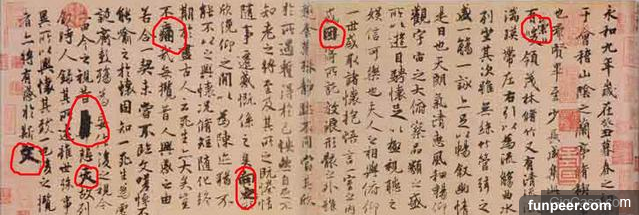 永和九年歲在癸丑暮春之初會
于會稽山陰之蘭亭脩稧事
也羣賢畢至少長咸集此地
有崇山峻領茂林脩竹又有清流激
湍暎帶左右引以為流觴曲水
列坐其次雖無絲竹管弦之
盛一觴一詠亦足以暢敘幽情
是日也天朗氣清惠風和暢仰
觀宇宙之大俯察品類之盛
所以遊目騁懷足以極視聽之
娛信可樂也夫人之相與俯仰
一世或取諸懷抱悟言一室之內
或因寄所託放浪形骸之外雖
趣舍萬殊靜躁不同當其欣
於所遇蹔得於己怏然自足不
知老之將至及其所之既惓情
隨事遷感慨係之矣向之所
欣俛仰之閒以為陳迹猶不
能不以之興懷況脩短隨化終
期於盡古人云死生亦大矣豈
不痛哉每攬昔人興感之由
若合一契未嘗不臨文嗟悼不
能喻之於懷固知一死生為虛
誕齊彭殤為妄作後之視今
亦由今之視昔悲夫故列
敘時人錄其所述雖世殊事
異所以興懷其致一也後之攬
者亦將有感於斯文
funpeer.com